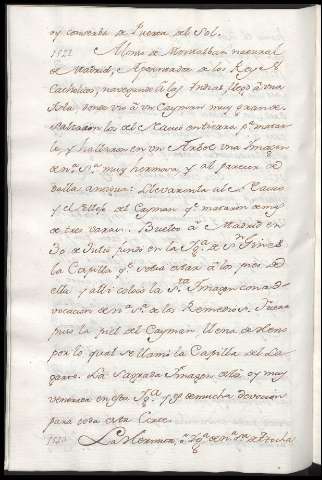 oy conserba de Puerta del Sol.
1522 Alonso de Montalban natural
de Madrid, Aposentador de los Reyes
Catholicos, navegando à las Indias, llegó à una
Isla donde vio à un Cayman muy grande.
Saltaron los del Navio en tierra pª matar
le, y hallaron en un Arbol una Imagen
de nrª Srª muy hermosa, y al parecer de
talla antigua: Llevaronla al Navio
y el pellejo del Cayman qª mataron de mas
de tres varas. Bueltos à Madrid en
30 de Julio fundo en la Iglª de Sn Ginès
la Capilla qª solia estar à los pies de
ella y alli colocò la Stª Imagen con ad
vocacion de nrª Srª de los Remedios. Fuera
puso la piel del Cayman llena de heno
por lo qual se llamò la Capilla del La
garto. La Sagrada Imagen està oy muy
venerada en esta Iglª y es de mucha devocion
para toda esta Corte.
La Hermita, ò Iglª de nrª Srª de Atocha